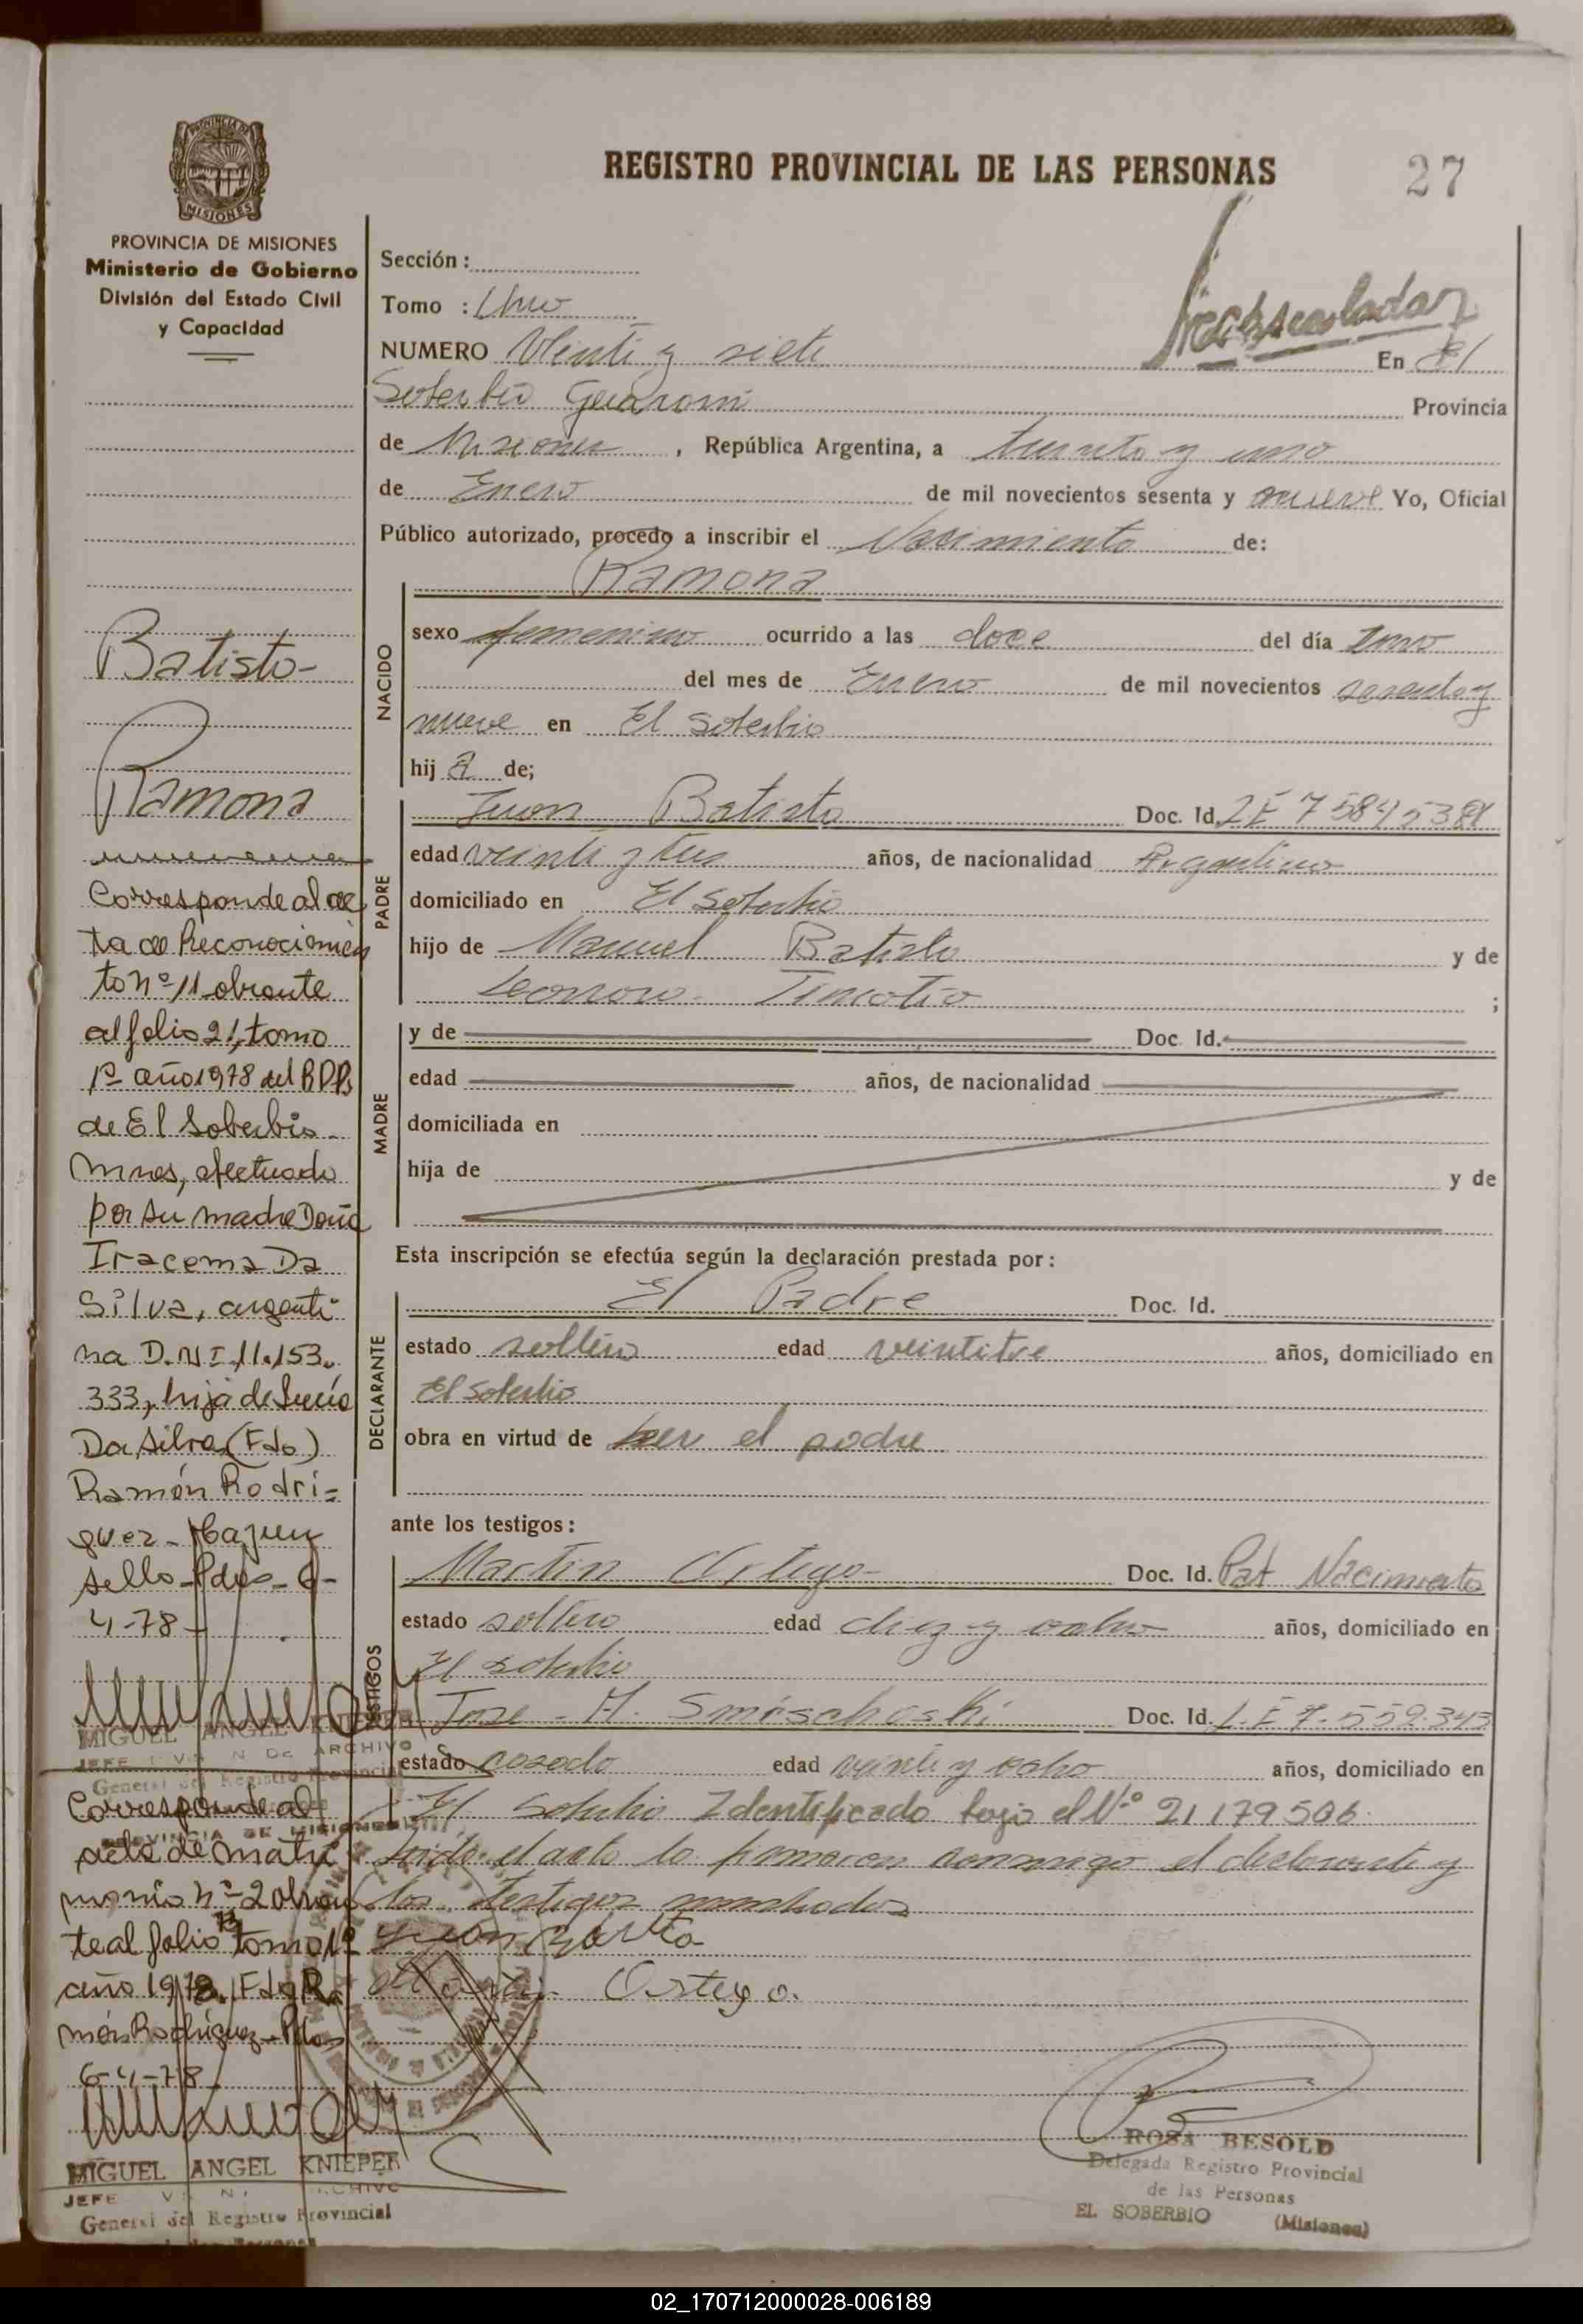 REGISTRO PROVINCIAL DE LAS PERSONAS
27
PROVINCIA DE MISIONES
MISIONES
PROVINCIA DE MISIONES
Ministerio de Gobierno
División del Estado Civil
y Capacidad
Batisto-
Ramona
Corresponde al ac
ta de Reconocimien
to nº 11 obrante
al folio 21, tomo
1º año 1978 del RPP
de El Soberbio-
Mnes, efectuado
por su madre Doña
Iracema Da
Silva, argenti-
na D.N.I 11.153.
333, hija de Lucía
Da Silva (Fdo)
Ramón Rodri=
guez - Hay un
sello - Pdas - 6-
4-78-
MIGUEL ANGEL KNIEPER
JEFE DE ARCHIVO
General del Registro Provincial
Corresponde al
PROVINCIA DE MISIONES
acta de matri
monio nº 2 obran
te al folio tomo 1º
año 1978. Fdo Ra
món Rodriguez - Pdas
6-4-78-
MIGUEL ANGEL KNIEPER
JEFE ARCHIVO
General del Registro Provincial
Sección :
Tomo : Uno
NUMERO Veinti y siete
En El
Soberbio Guarani Provincia
de Misiones , República Argentina, a treinta y uno
de Enero de mil novecientos sesenta y nueve Yo, Oficial
Público autorizado, procedo a inscribir el Nacimiento de:
Ramona
NACIDO
sexo femenino ocurrido a las doce del día Uno
del mes de Enero de mil novecientos sesenta y
nueve en El Soberbio
hij a de;
PADRE
Juan Batisto Doc. Id. LE
edad veinti y tres años, de nacionalidad Argentino
domiciliado en El Soberbio
hijo de Manuel Batisto y de
Leonora Timotio ;
MADRE
y de Doc. Id.
edad años, de nacionalidad
domiciliada en
hija de y de
Esta inscripción se efectúa según la declaración prestada por :
DECLARANTE
El Padre Doc. Id.
estado soltero edad veintitre años, domiciliado en
El Soberbio
obra en virtud de ser el padre
ante los testigos :
TESTIGOS
Martin Ortega Doc. Id. Pat Nacimiento
estado soltero edad diez y ocho años, domiciliado en
El soberbio
Jose - M. Doc. Id. L.E 7.552.343
estado casado edad veinti y ocho años, domiciliado en
El Soberbio Identificado bajo el Nº 21179506
Leido el acto lo firmaron conmigo el declarante y
los testigos nombrados
Juan
Martin Ortega.
ROSA BESOLD
Delegada Registro Provincial
de las Personas
EL SOBERBIO (Misiones)
02_170712000028-006189